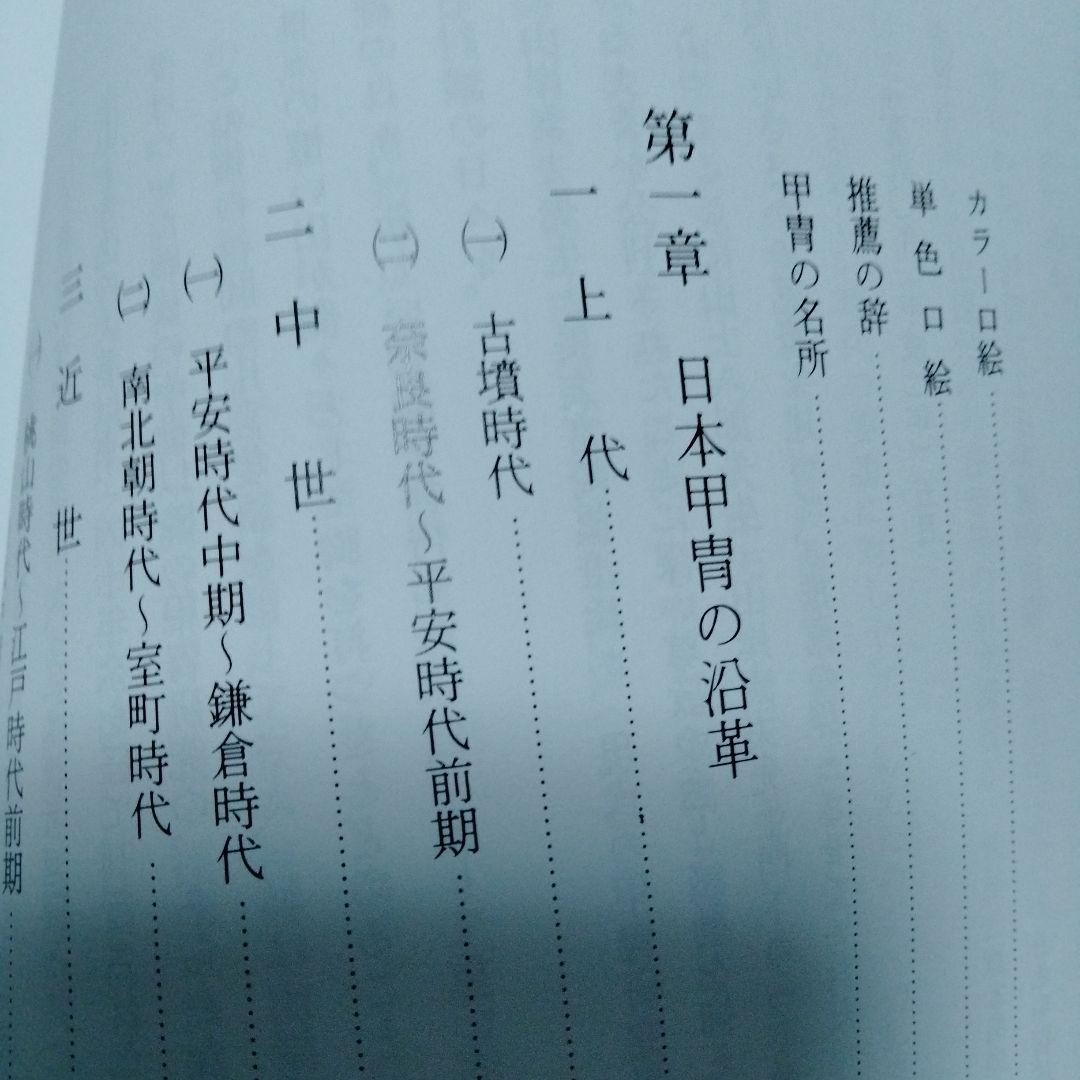 カラー口絵
単色口絵
推薦の辞
甲冑の名所
第一章 日本甲冑の沿革
一 上代
㈠ 古墳時代
㈡ 奈良時代～平安時代前期
二 中世
㈠ 平安時代中期～鎌倉時代
㈡ 南北朝時代～室町時代
三 近世
㈠ 桃山時代～江戸時代前期